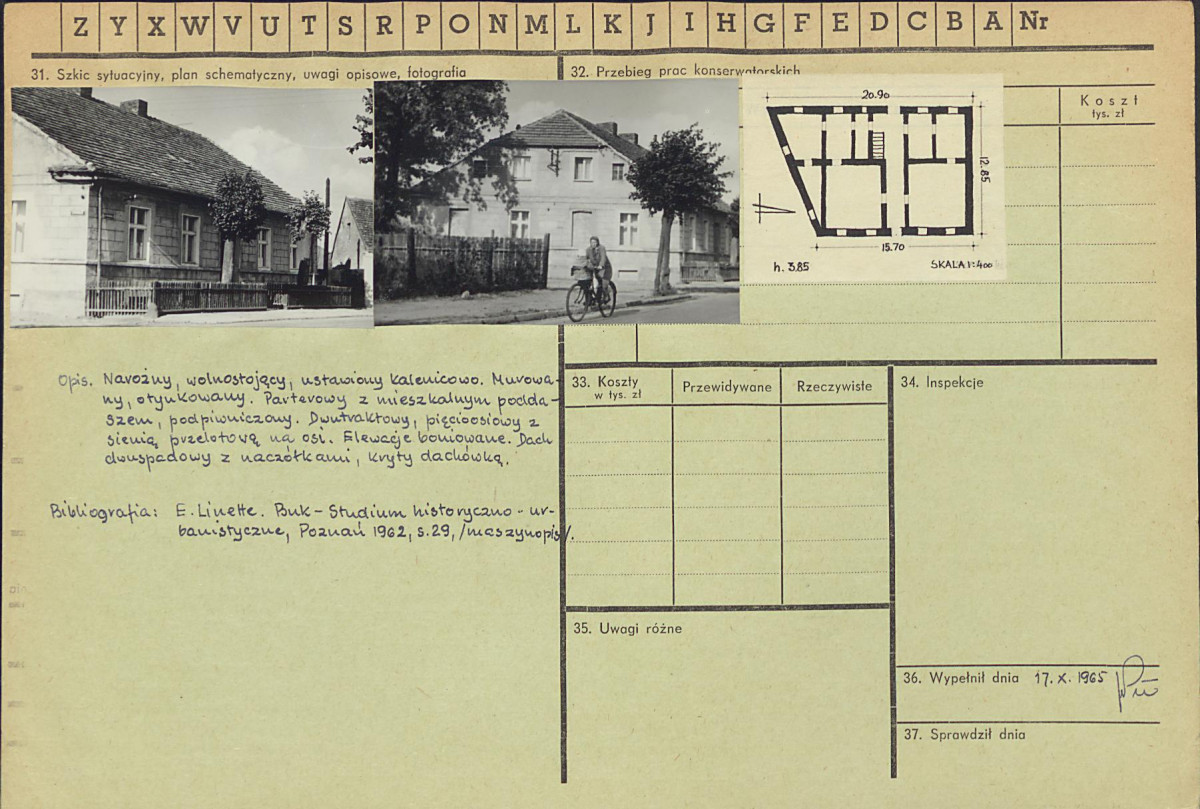 Z Y X W V U T S R P O N M L K J I H G F E D C B A Nr
31. Szkic sytuacyjny, plan schematyczny, uwagi opisowe, fotografia
32. Przebieg prac konserwatorskich
Koszt
tys. zł
20.90
12.85
15.70
h. 3.85
SKALA 1:400
Opis. Narożny, wolnostojący, ustawiony kalenicowo. Murowa-
ny, otynkowany. Parterowy z mieszkalnym podda-
szem, podpiwniczony. Dwutraktowy, pięcioosiowy z
sienią przelotową na osi. Elewacje boniowane. Dach
dwuspadowy z naczółkami, kryty dachówką.
Bibliografia: E. Linette. Buk - Studium historyczno - ur-
banistyczne, Poznań 1962, s.29, /maszynopis/.
33. Koszty
w tys. zł
Przewidywane
Rzeczywiste
34. Inspekcje
35. Uwagi różne
36. Wypełnił dnia 17. X. 1965
37. Sprawdził dnia